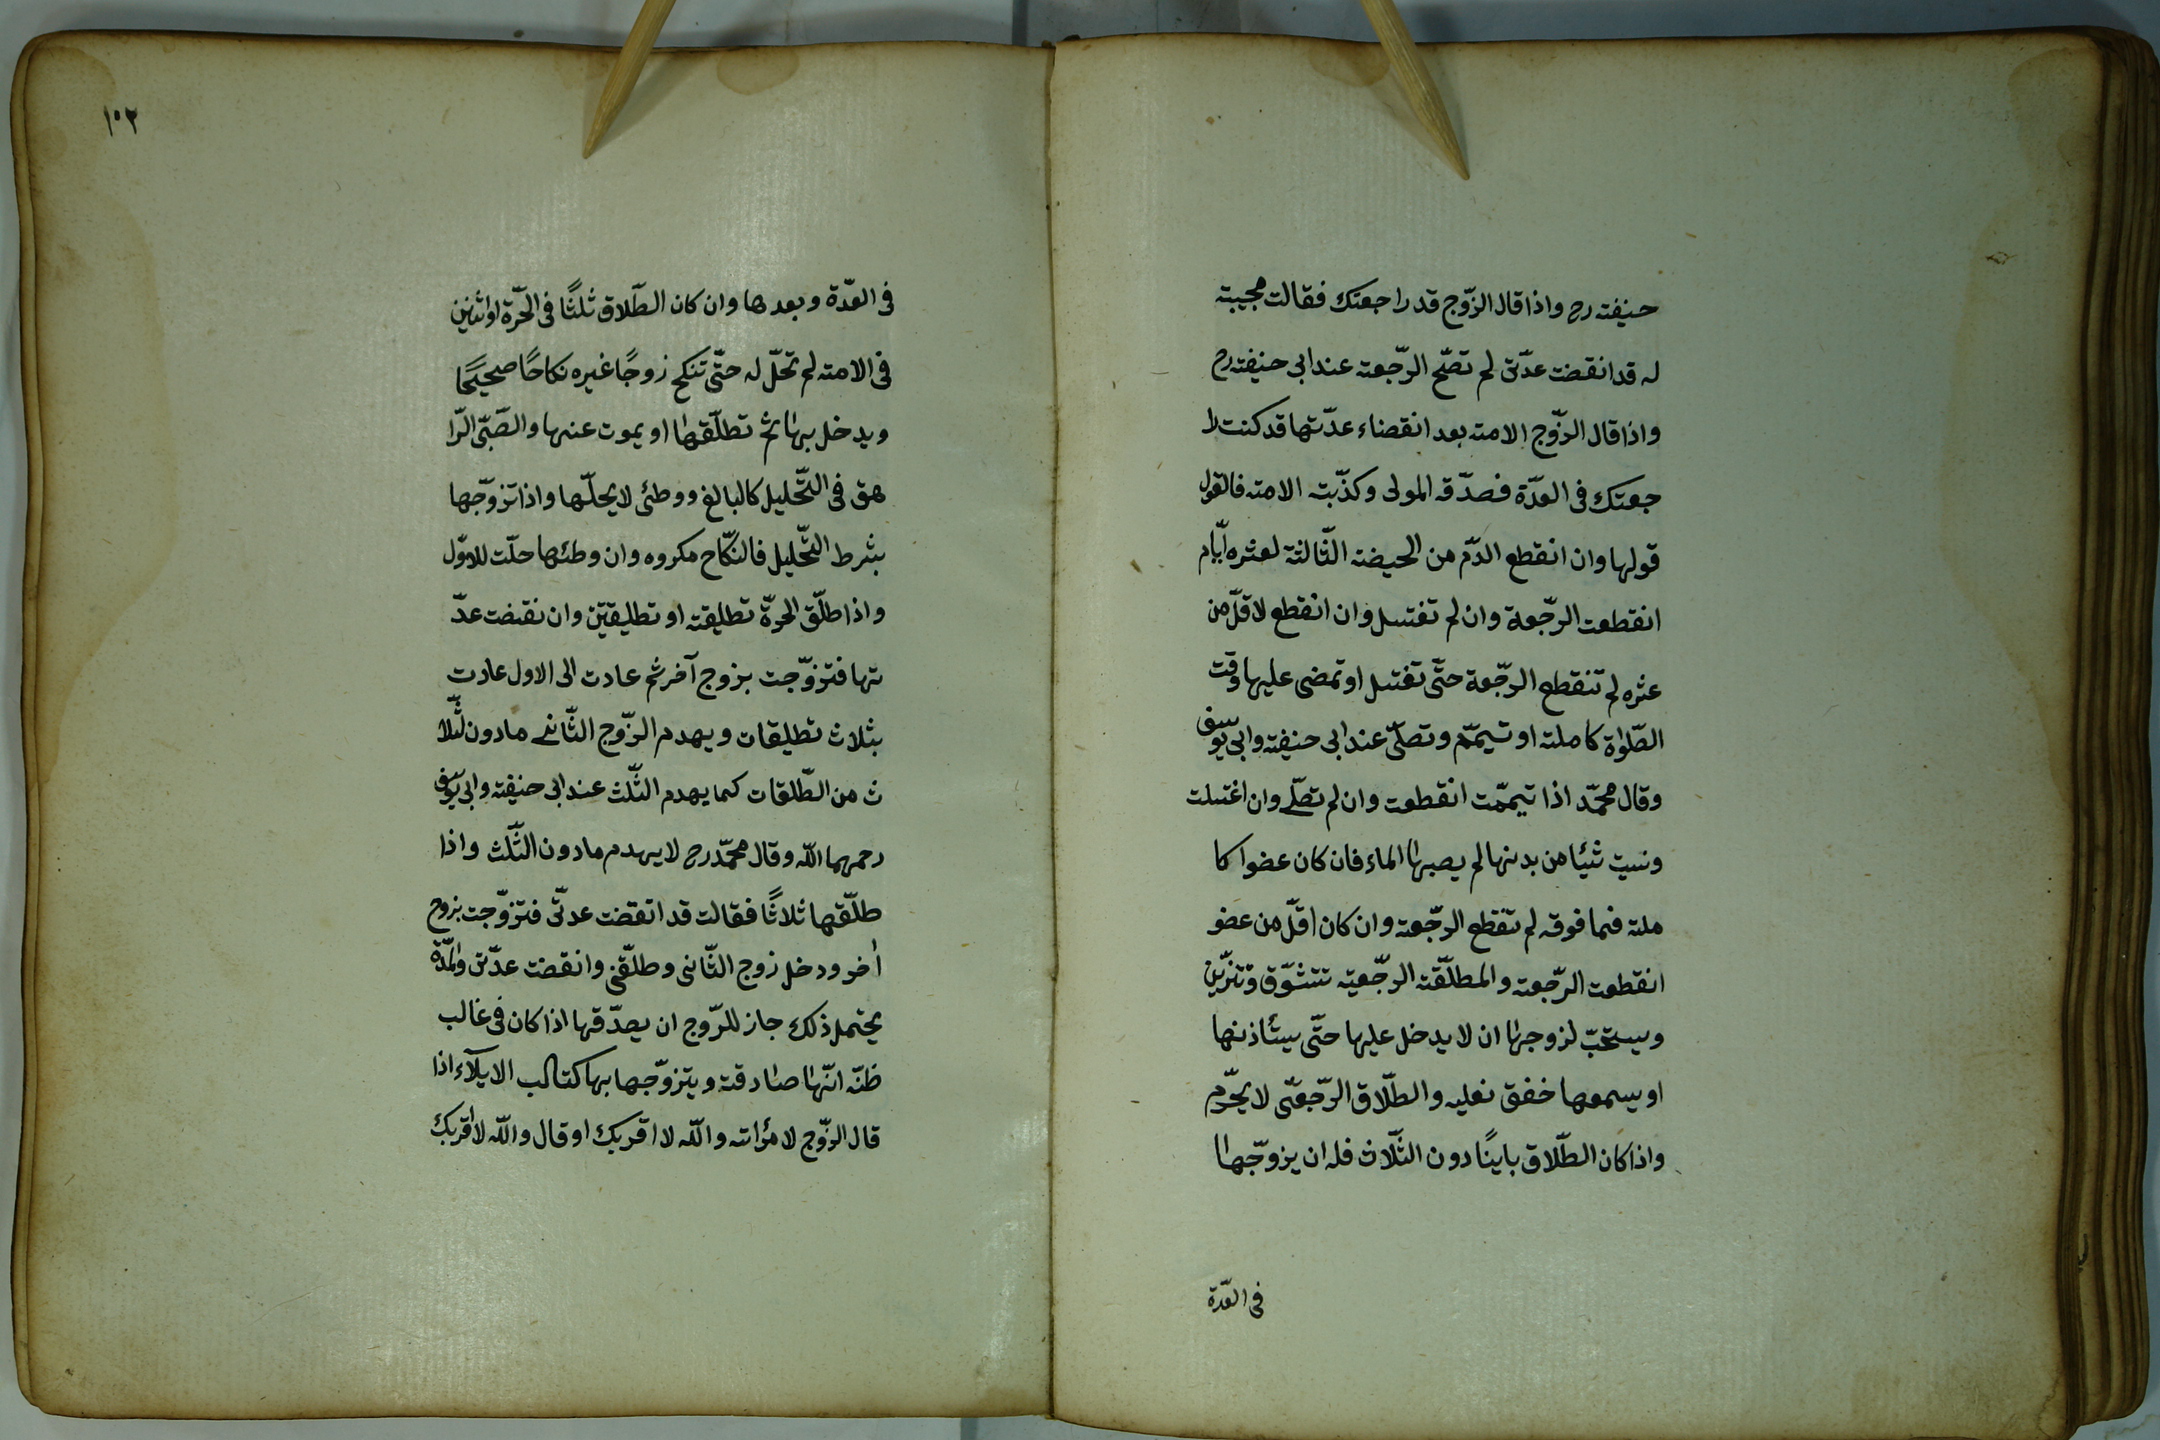 حنيفته رح واذا قال الزّوج قد راجعتك فقالت مجيبته
له قد انقضت عدّتى لم تصّح الرّجعته عند ابى حنيفته رح
واذا قال الزّوج الامته بعد انقضاء عدّتها قد كنت لا
جعتك فى العدّة فصدّقه المولى وكذّبته الامته فالقول
قولها وان انقطع الدّم من الحيضته الثّالثة لعشره ايّام
انقطعت الرّجعة وان لم تغتسل وان انقطع لاقلّ من
عشره لم تنقطع الرّجعة حتّى تغتسل او تمضى عليها وقت
الصّلوٰة كاملته او تيمّم وتصلّى عند ابى حنيفته وابى يوسف
وقال محمّد اذا تيممّت انقطعت وان لم تصلّى وان اغتسلت
ونسيت شيئا من بدنها لم يصبها الماء فان كان عضوا كا
ملته فما فوقه لم تنقطع الرّجعته وان كان اقلّ من عضو
انقطعت الرّجعته والمطلّقته الرّجعيّه تتشوّق وتتزيّن
ويستحّب لزوجها ان لا يدخل عليها حتّى يستأذنها
او يسمعها خفق نعليه والطّلاق الرّجعّى لا يحّرم
واذا كان الطّلاق باينًا دون الثّلاث فله ان يزوّجها
فى العدّة
١٥٢
فى العدّة وبعدها وان كان الطّلاق ثلثًا فى الحّرة او اثنين
فى الامته لم تحلّ له حتّى تنكح زوجًا غيره نكاحًا صحيحًا
ويدخل بها ثم تطلّقها او يموت عنها والصّبّى الرّا
هق فى التّحليل كالبالغ ووطئى لا يحلّها واذا تزوّجها
بشرط التّحليل فالنّكاح مكروه وان وطئها حلّت للاوّل
واذا طلّق الحرّة تطليقته او تطليقتين وان نقضت عدّ
تها فتزوّجت بزوج آخر ثم عادت الى الاول عادت
بثلاث تطليقات ويهدم الزّوج الثّانى مادون لثّلا
ث من الطّلقات كما يهدم الثّلث عند ابى حنيفته وابى يوسف
رحمهما اللّه وقال محمّد رح لا يهدم مادون الثّلث واذا
طلّقها ثلاثًا فقالت قد انقضت عدتّى فتزوّجت بزوج
اٰخر ودخل زوج الثّانى وطلّقنى وانقضت عدّتى والمدّة
يحتمل ذلك جاز للزّوج ان يصدّقها اذا كان فى غالب
ظنّه انّها صادقته ويتزوّجها بها كتاب الايلآء اذا
قال الزّوج لامرٔاته واللّه لا اقربك او قال واللّه لا اقربك